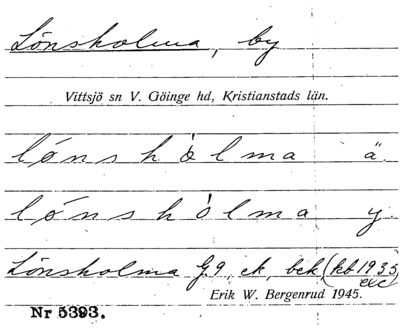 Lönsholma, by
Vittsjö sn V. Göinge hd, Kristianstads län.
lónshòlma ä.
lónshòlma y.
Lönsholma G9, ek, bek (kb 1935
exc)
Erik W. Bergenrud 1945.
Nr 5393.